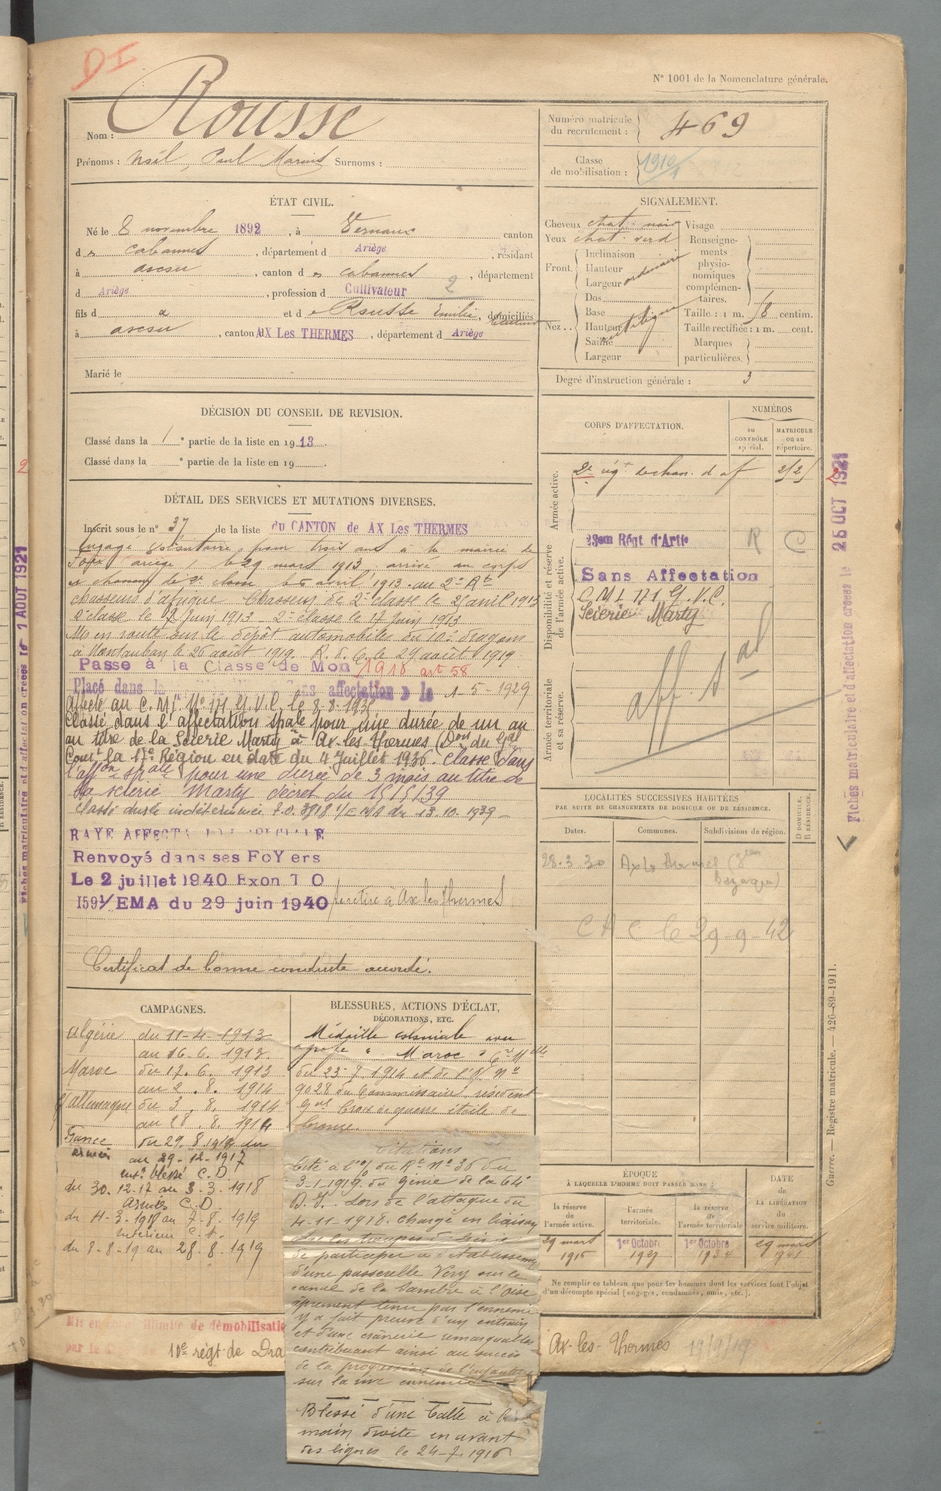 DI
N° 1001 de la Nomenclature générale.
Nom : Rousse
Prénoms : Noël, Paul Marius Surnoms :
Numéro matricule du recrutement : 469
Classe de mobilisation : 1910
ÉTAT CIVIL.
Né le 8 novembre 1892, à Vernaux canton
d es Cabannes, département d Ariège, résidant
à ascou, canton d es Cabannes, département
d Ariège, profession d Cultivateur 2
fils d et d e Rousse Emilie, domiciliés
à ascou, canton AX Les THERMES, département d Ariège
Marié le
SIGNALEMENT.
Cheveux chat. noir Visage
Yeux chat. verd
Renseignements physionomiques complémentaires.
Front. Inclinaison
Hauteur ordinaire
Largeur
Nez. Dos
Base
Hauteur
Saillie
Largeur
Taille : 1 m. 8 centim.
Taille rectifiée : 1 m. cent.
Marques particulières.
Degré d'instruction générale : 3
DÉCISION DU CONSEIL DE REVISION.
Classé dans la 1re partie de la liste en 1913.
Classé dans la e partie de la liste en 19
DÉTAIL DES SERVICES ET MUTATIONS DIVERSES.
Inscrit sous le n° 37 de la liste du CANTON de AX Les THERMES
Engagé volontaire pour trois ans à la mairie de
Foix ariège, le 29 mars 1913, arrivé au corps
et chasseur de 2e classe le avril 1913 au 2e Rt
chasseurs d'afrique. Chasseur de 2e classe le avril 1913
2e classe le Juin 1913 - 2e classe le 17 Juin 1913
Mis en route sur le dépôt automobiles du 10e dragons
à Montauban le 26 août 1919. R. d. C. le 29 août 1919
Passe à la Classe de Mon 1910 art 58
Placé dans la sans affectation le 1-5-1929
affecté au C. M. I. N° 171 G.V.C. le 8-8-193
Classé dans l'affectation spale pour une durée de un an
au titre de la Scierie Marty à Ax-les-Thermes (Don du Gal
Comt la 17e Région en date du 4 Juillet 1936. Classé dans
l'affon spale pour une durée de 3 mois au titre de
la scierie Marty decret du
Classé durée indéterminée I.O. 3818 du 13.10.1939
RAYE AFFECTATION SPECIALE
Renvoyé dans ses FoYers
Le 2 juillet 1940 Exon I O
1591/EMA du 29 juin 1940 se retire à Ax les Thermes
Certificat de bonne conduite accordé.
CORPS D'AFFECTATION.
NUMÉROS
AU CONTRÔLE spécial.
MATRICULE ou au répertoire.
Armée active.
2e régt de chas. d'af
Disponibilité et réserve de l'armée active.
23em Régt d'Artie R C
Sans Affectation
C. M. I. 171 G. V. C.
Scierie Marty
Armée territoriale et sa réserve.
aff. spal
LOCALITÉS SUCCESSIVES HABITÉES
PAR SUITE DE CHANGEMENTS DE DOMICILE OU DE RÉSIDENCE.
Dates. Communes. Subdivisions de région. D DOMICILE. R RÉSIDENCE.
28-3-30
C A C le 29-9-42
CAMPAGNES.
Algérie du 11-4-1913
au 16.6.1913.
Maroc du 17.6.1913
au 2.8.1914
c/Allemagne du 3.8.1914
au 28.8.1914
France du 29.8.1914 au
armées au 29-12-1917
intr blessé C. D.
du 30.12.17 au 3.3.1918
Armées C. D.
du 4-3-1918 au 7-8-1919
intérieur C. S.
du 8-8-19 au 28.8.1919
BLESSURES, ACTIONS D'ÉCLAT,
DÉCORATIONS, ETC.
Médaille coloniale avec
agrafe " Maroc "
du 23-7-1914 et de l'O. n°
9028 du Commissaire résident
Gal Croix de guerre étoile de
bronze.
Citations
Cité à l'O/ du Rt N° 36 du
3-1-1919 du 9ème de la 64e
D. I. Lors de l'attaque du
4-11-1918. chargé en liaison
avec les troupes du Génie
de participer à l'établissement
d'une passerelle Véry sur le
canal de la Sambre à l'Oise
âprement tenu par l'ennemi
y a fait preuve d'un entrain
et d'une crânerie remarquables
contribuant ainsi au succès
de la progression de l'infanterie
sur la rive ennemie
Blessé d'une balle à la
main droite en avant
des lignes le 24-7-1916
ÉPOQUE
À LAQUELLE L'HOMME DOIT PASSER DANS :
la réserve de l'armée active. l'armée territoriale. la réserve de l'armée territoriale
DATE DE LA LIBÉRATION du service militaire.
29 mars 1916 1er Octobre 1929 1er Octobre 29 mars
Ne remplir ce tableau que pour les hommes dont les services font l'objet d'un décompte spécial (engagés, condamnés, omis, etc.).
Mis en congé illimité de démobilisation
par le
10e régt de Dra
Ax-les-Thermes
Fiches matriculaire et d'affectation créées le 25 OCT 1921
Fiches matriculaires et d'affectation créées le 1 AOUT 1921
Guerre. — Registre matricule. — 426-89-1911.